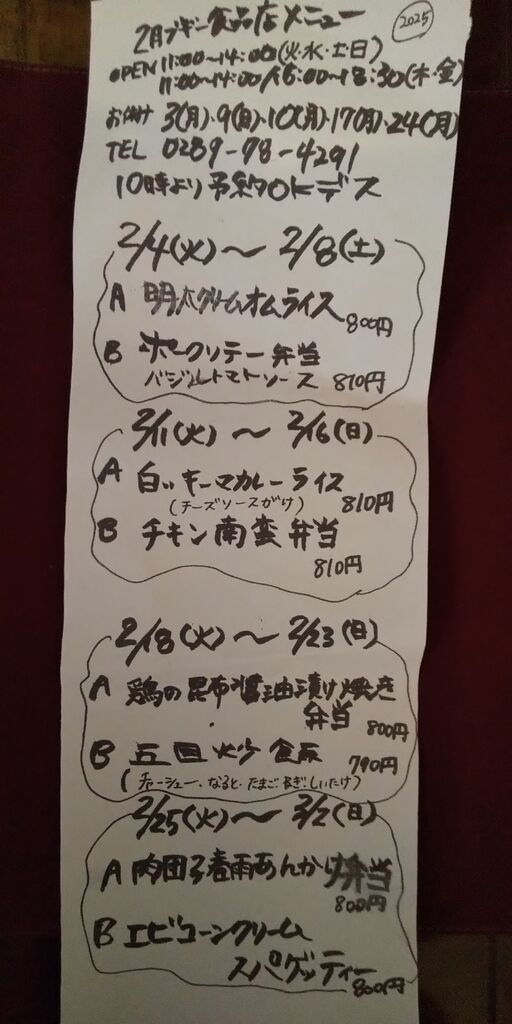 2月ブギー食品店メニュー
2025
OPEN 11:00〜14:00(火・水・土・日)
11:00〜14:00/16:00〜18:30(木・金)
お休み 3(月)・9(日)・10(月)・17(月)・24(月)
TEL 0289-78-4291
10時より予約OKデス
2/4(火)〜2/8(土)
A 明太クリームオムライス
800円
B ポークソテー弁当
バジルトマトソース 810円
2/11(火)〜2/16(日)
A 白いキーマカレーライス
(チーズソースがけ) 810円
B チキン南蛮弁当
810円
2/18(火)〜2/23(日)
A 鶏の昆布醤油漬け焼き
弁当 800円
B 五目炒飯 790円
(チャーシュー・なると・たまご・ねぎ・しいたけ)
2/25(火)〜3/2(日)
A 肉団子春雨あんかけ弁当
800円
B エビコーンクリーム
スパゲッティー
800円